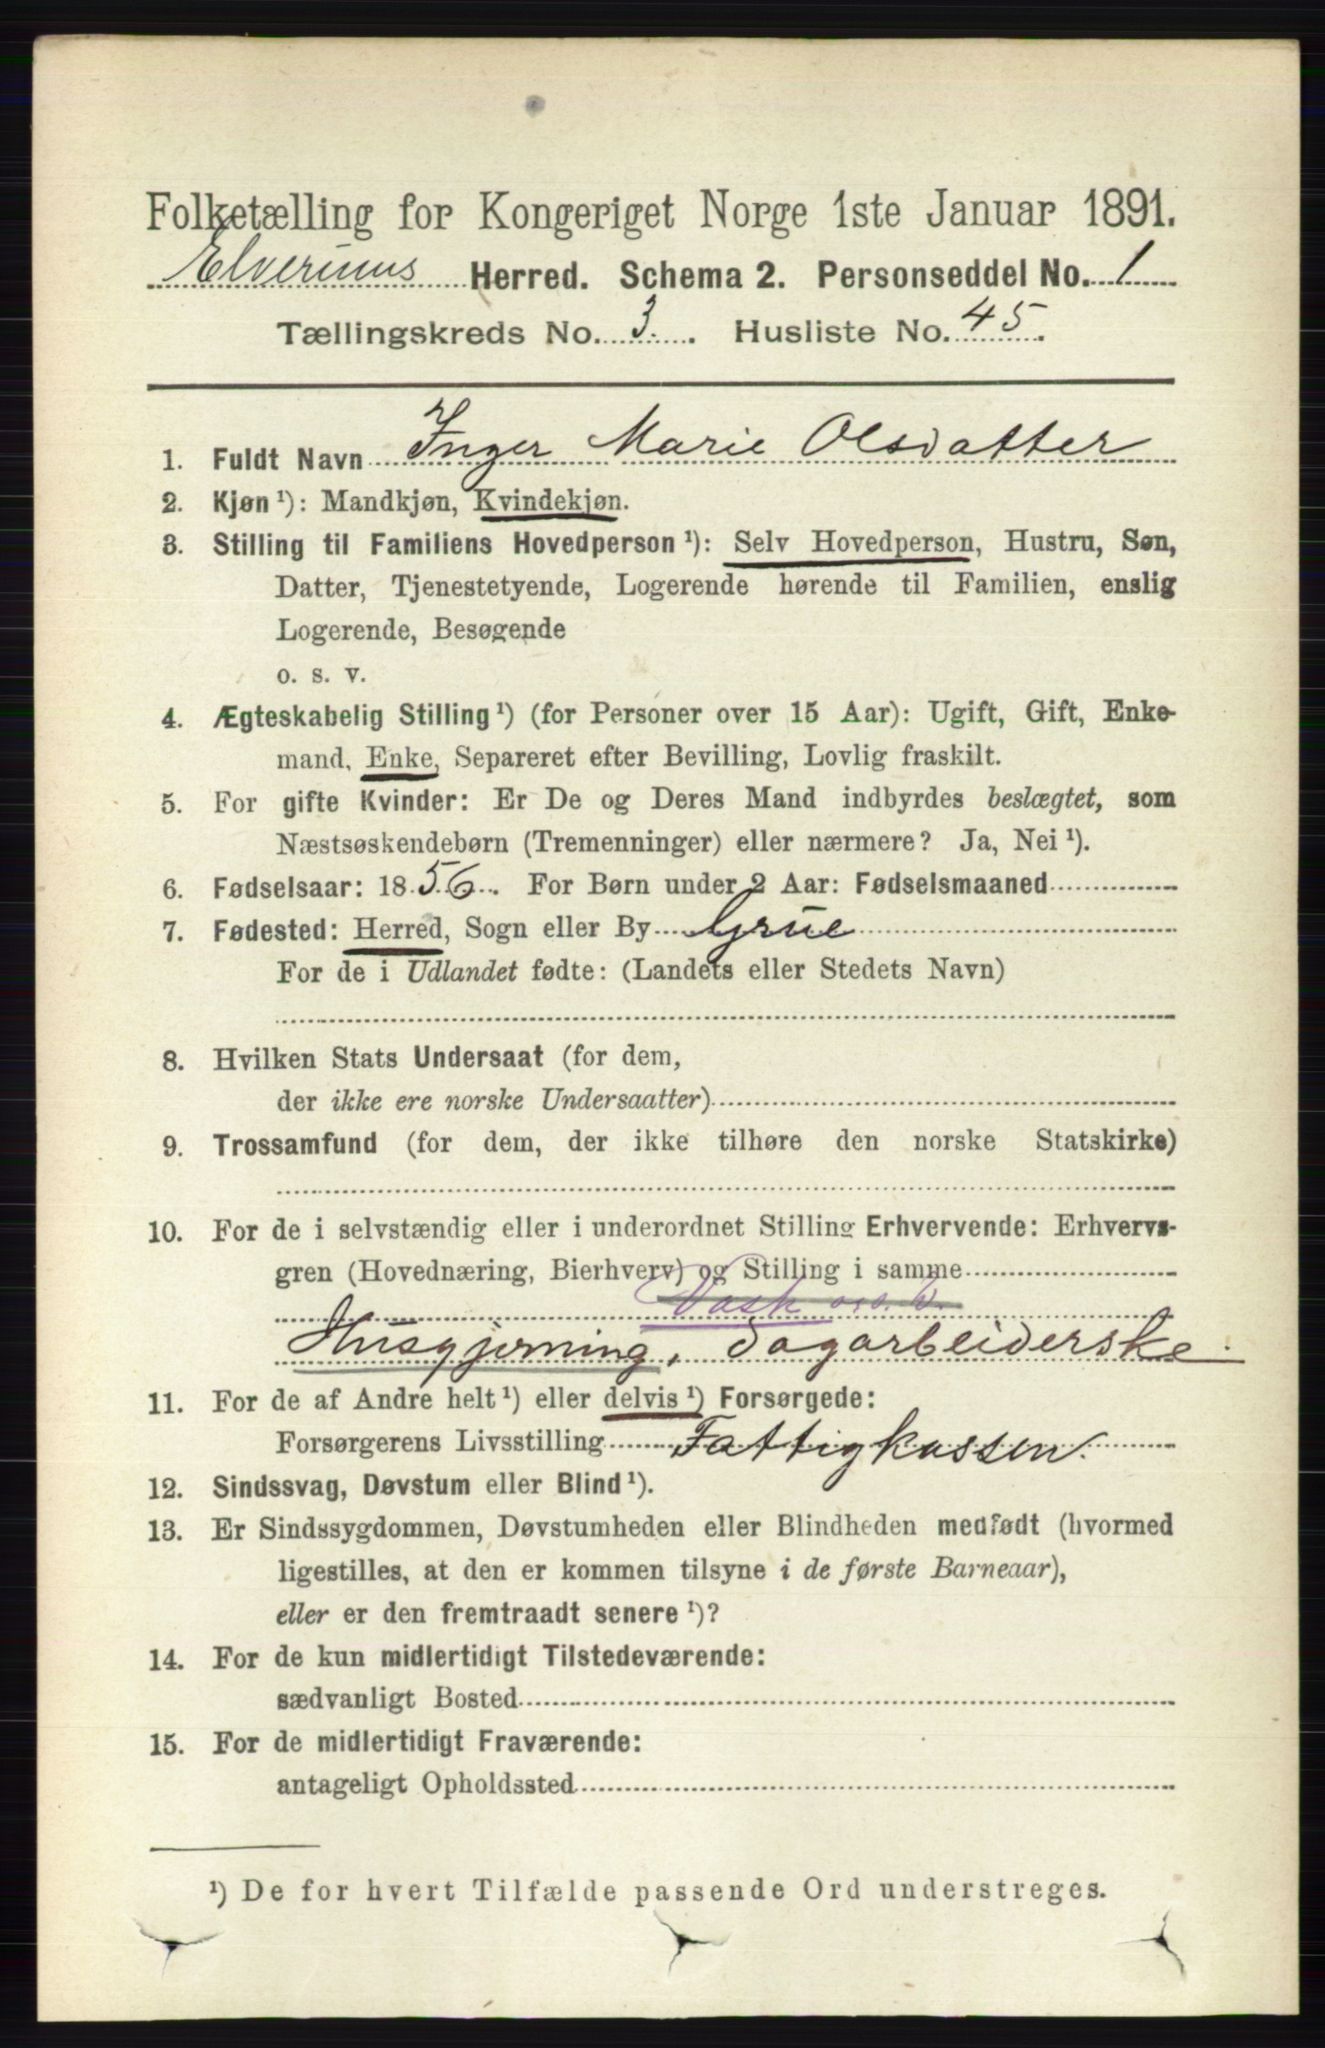 Folketælling for Kongeriget Norge 1ste Januar 1891.
Elverums Herred. Schema 2. Personseddel No. 1
Tællingskreds No. 3. Husliste No. 45.
1. Fuldt Navn Inger Marie Olsdatter
2. Kjøn ¹): Mandkjøn, Kvindekjøn.
3. Stilling til Familiens Hovedperson ¹): Selv Hovedperson, Hustru, Søn,
Datter, Tjenestetyende, Logerende hørende til Familien, enslig
Logerende, Besøgende
o. s. v.
4. Ægteskabelig Stilling ¹) (for Personer over 15 Aar): Ugift, Gift, Enke-
mand, Enke, Separeret efter Bevilling, Lovlig fraskilt.
5. For gifte Kvinder: Er De og Deres Mand indbyrdes beslægtet, som
Næstsøskendebørn (Tremenninger) eller nærmere? Ja, Nei ¹).
6. Fødselsaar: 1856. For Børn under 2 Aar: Fødselsmaaned
7. Fødested: Herred, Sogn eller By Grue
For de i Udlandet fødte: (Landets eller Stedets Navn)
8. Hvilken Stats Undersaat (for dem,
der ikke ere norske Undersaatter)
9. Trossamfund (for dem, der ikke tilhøre den norske Statskirke)
10. For de i selvstændig eller i underordnet Stilling Erhvervende: Erhvervs-
gren (Hovednæring, Bierhverv) og Stilling i samme
Vask
Husgjerning, dagarbeiderske.
11. For de af Andre helt ¹) eller delvis ¹) Forsørgede:
Forsørgerens Livsstilling Fattigkassen.
12. Sindssvag, Døvstum eller Blind ¹).
13. Er Sindssygdommen, Døvstumheden eller Blindheden medfødt (hvormed
ligestilles, at den er kommen tilsyne i de første Barneaar),
eller er den fremtraadt senere ¹)?
14. For de kun midlertidigt Tilstedeværende:
sædvanligt Bosted
15. For de midlertidigt Fraværende:
antageligt Opholdssted
¹) De for hvert Tilfælde passende Ord understreges.